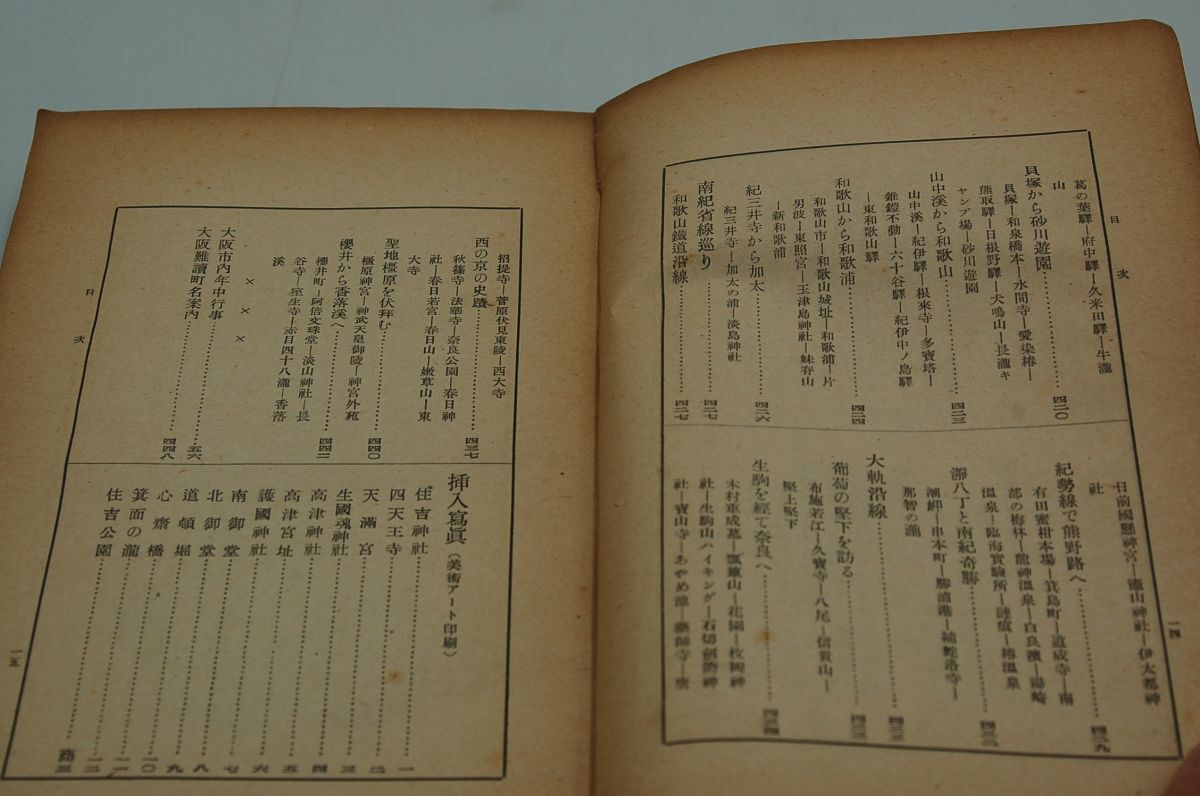 目次
葛の葉驛―府中驛―久米田驛―牛瀧
山……四二〇
貝塚から砂川遊園
貝塚―和泉橋本―水間寺―愛染椿―
熊取驛―日根野驛―犬鳴山―長瀧キ
ャンプ場―砂川遊園
山中溪から和歌山……四二三
山中溪―紀伊驛―根來寺―多寶塔―
錐鑽不動―六十谷驛―紀伊中ノ島驛
―東和歌山驛
和歌山から和歌浦……四二四
和歌山市―和歌山城址―和歌浦―片
男波―東照宮―玉津島神社―妹脊山
―新和歌浦
紀三井寺から加太……四二六
紀三井寺―加太の浦―淡島神社
南紀省線巡り……四二七
和歌山鐵道沿線……四二七
日前國懸神宮―竈山神社―伊太都神
社……四二九
紀勢線で熊野路へ
有田蜜柑本場―箕島町―道成寺―南
部の梅林―龍神溫泉―白良濱―湯崎
溫泉―臨海實驗所―椿溫泉
瀞八丁と南紀奇勝……四三二
潮岬―串本町―勝浦港―補陀洛寺―
那智の瀧
大軌沿線……四三三
葡萄の堅下を訪る……四三三
布施若江―久寶寺―八尾―信貴山―
堅上堅下
生駒を經て奈良へ……四三四
木村重成墓―瓢簞山―花園―枚岡神
社―生駒山ハイキング―石切劍箭神
社―寶山寺―あやめ池―藥師寺―唐
一四
招提寺―菅原伏見東陵―西大寺
西の京の史蹟……四三七
秋篠寺―法華寺―奈良公園―春日神
社―春日若宮―春日山―嫩草山―東
大寺
聖地橿原を伏拜む……四四〇
橿原神宮―神武天皇御陵―神宮外苑
櫻井から香落溪へ……四四二
櫻井町―阿倍文珠堂―淡山神社―長
谷寺―室生寺―赤目四十八瀧―香落
溪
× × ×
大阪市內年中行事……五六
大阪難讀町名案內……四四八
目次
挿入寫眞（美術アート印刷）
住吉神社……一
四天王寺……二
天滿宮……三
生國魂神社……三
高津神社……四
高津宮址……五
護國神社……六
南御堂……七
北御堂……八
道頓堀……九
心齋橋……一〇
箕面の瀧……一一
住吉公園……一二
一五